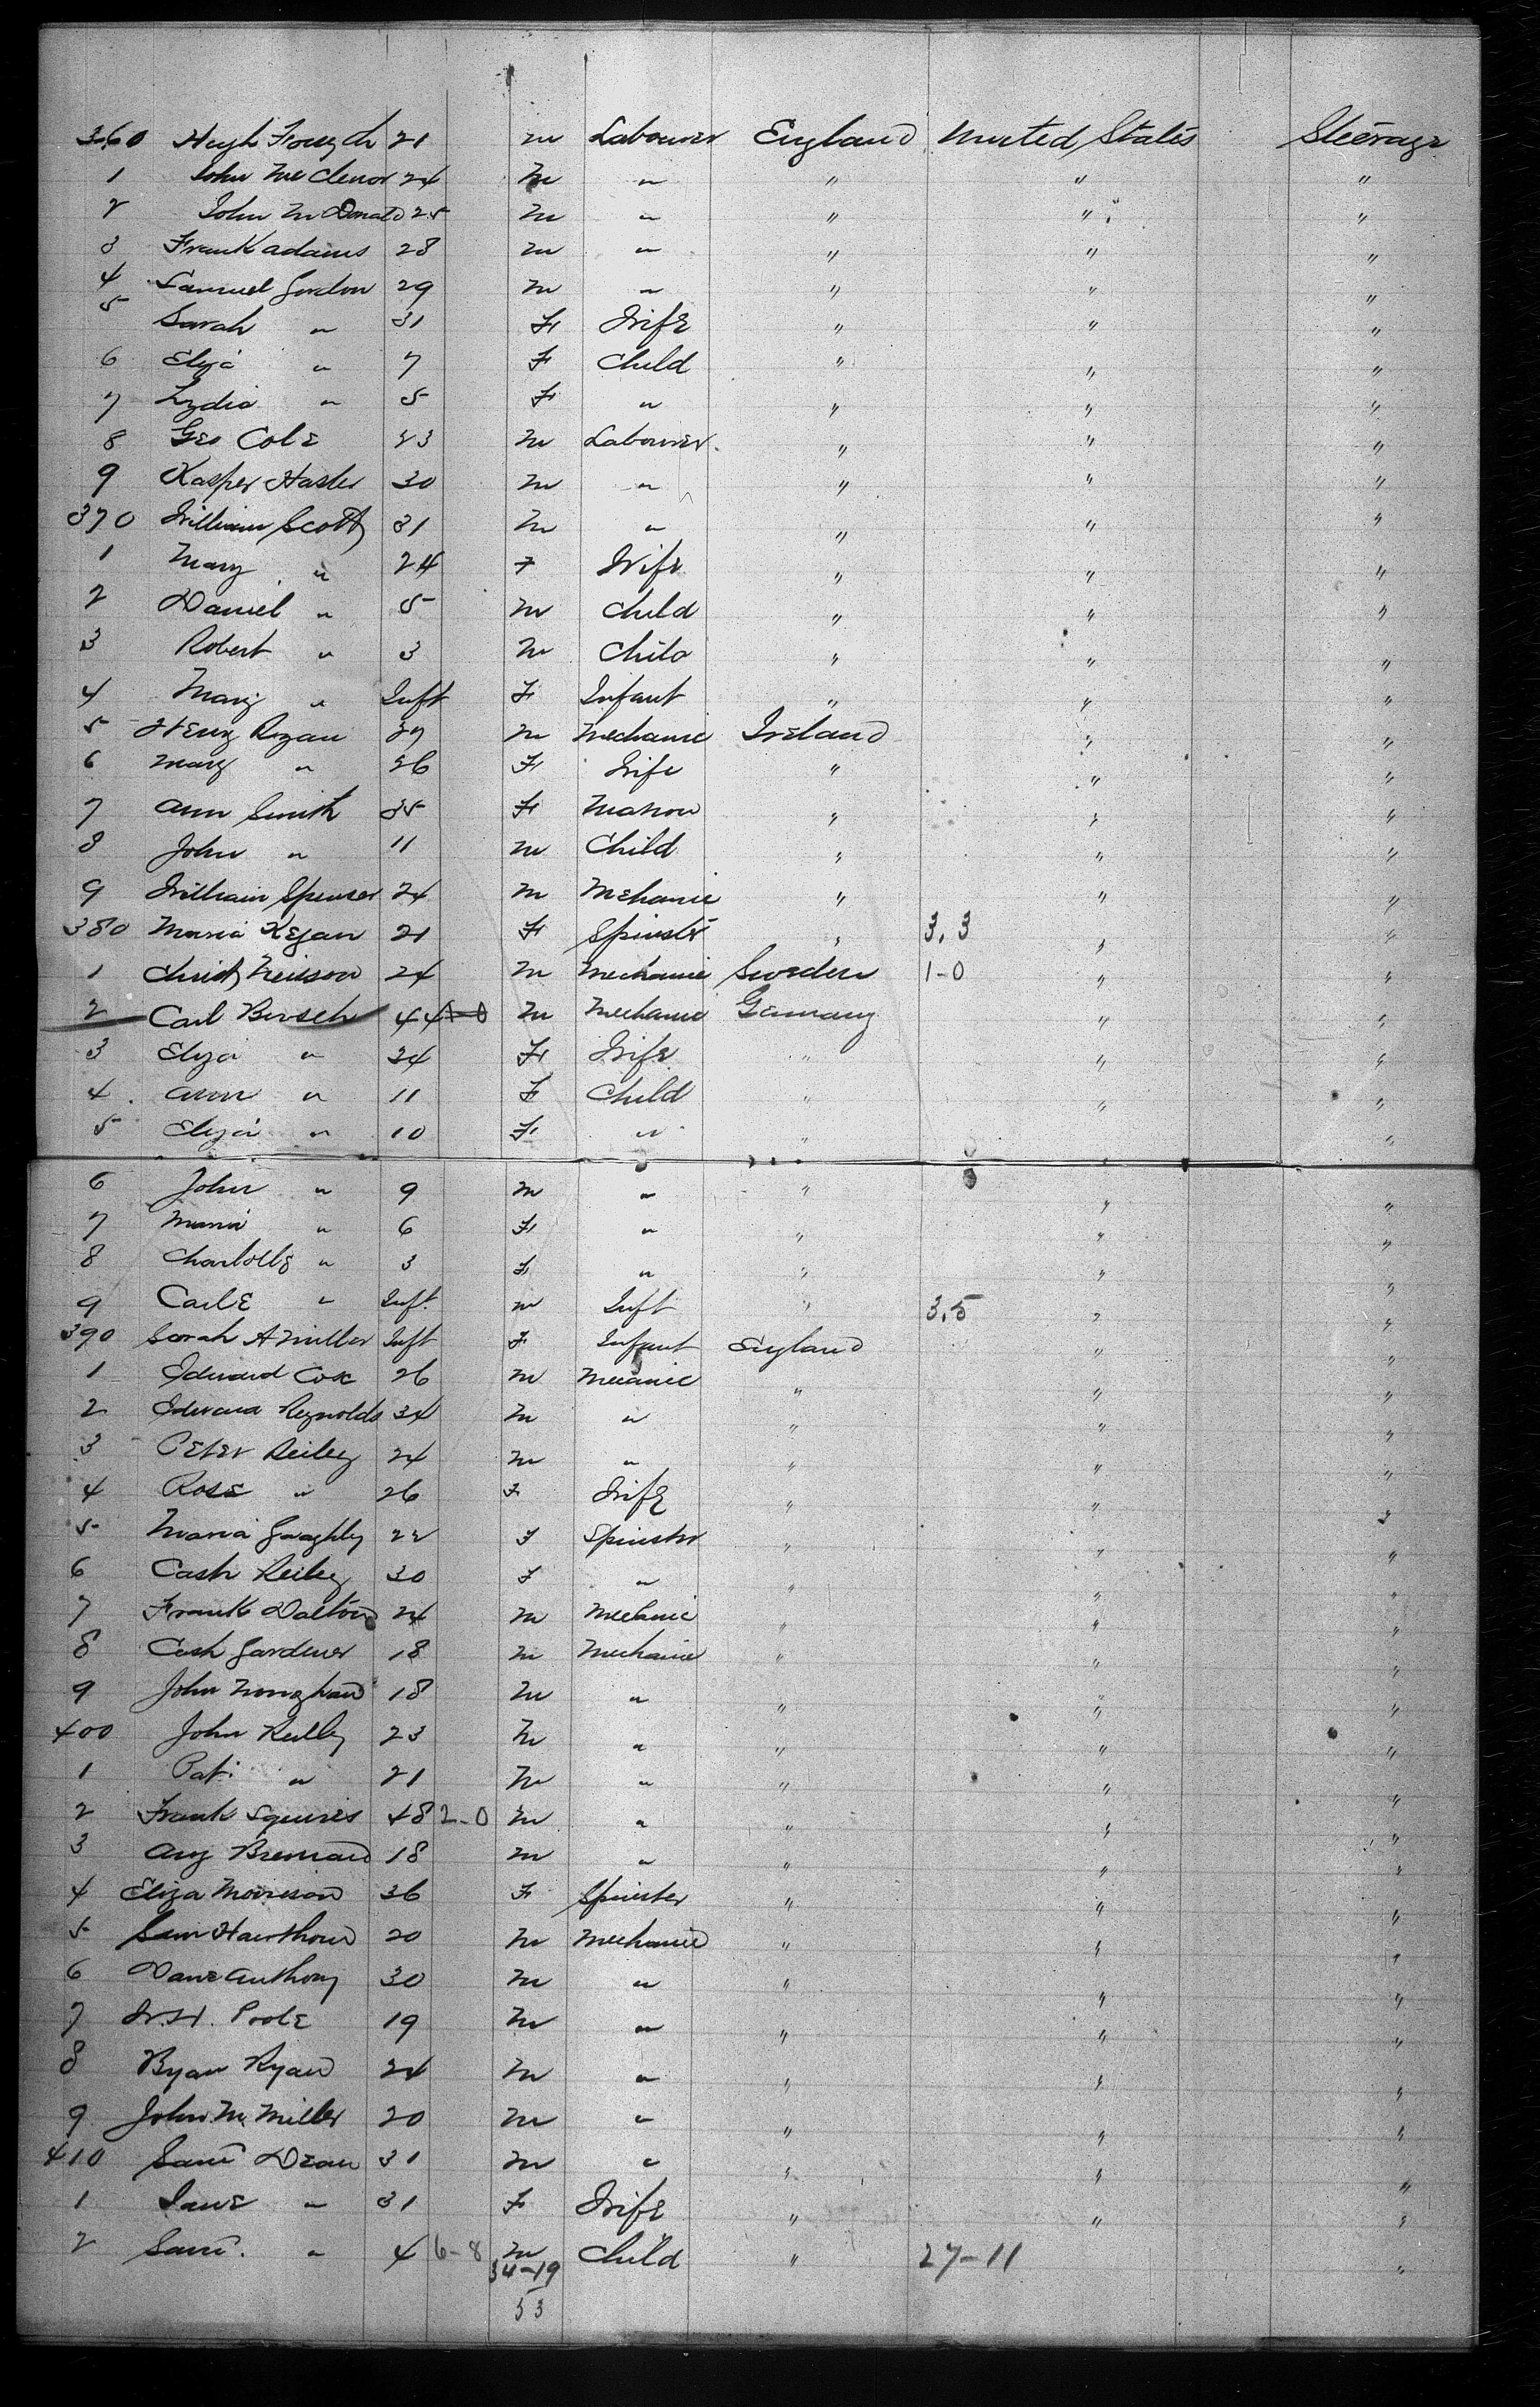 360 Hugh Forsyth 21 m Labourer England United States Steerage
1 John McClenor 24 m " " " "
2 John McDonald 25 m " " " "
3 Frank Adams 28 m " " " "
4 Samuel Gordon 29 m " " " "
5 Sarah " 31 F Wife " " "
6 Eliza " 7 F Child " " "
7 Lydia " 5 F " " " "
8 Geo Cole 23 m Labourer " " "
9 Kasper Hasler 30 m " " " "
370 William Scott 31 m " " " "
1 Mary " 24 F Wife " " "
2 Daniel " 5 m Child " " "
3 Robert " 3 m Child " " "
4 Mary " Inft F Infant " " "
5 Henry Rogan 37 m Mechanic Ireland " "
6 Mary " 26 F Wife " " "
7 Ann Smith 35 F Matron " " "
8 John " 11 m Child " " "
9 William Spenser 24 m Mehanic " " "
380 Maria Kegan 21 F Spinstr " 3.3 " "
1 Christ Neilson 24 m Mechanic Sweden 1-0 " "
2 Carl Bersch 44 m Mechanic Germany " "
3 Eliza " 34 F Wife " " "
4 Ann " 11 F Child " " "
5 Eliza " 10 F " " " "
6 John " 9 m " " " "
7 Maria " 6 F " " " "
8 Charlotte " 3 F " " " "
9 Carle " Inft. m Inft " 3.5 " "
390 Sarah A Miller Inft F Infant England " "
1 Edward Cox 26 m Mecanic " " "
2 Edward Reynolds 34 m " " " "
3 Peter Reiley 24 m " " " "
4 Rose " 26 F Wife " " "
5 Maria 22 F Spinster " " "
6 Cash Reiley 30 F " " " "
7 Frank Dalton 24 m Mechanic " " "
8 Cash Gardener 18 m Mechanic " " "
9 John 18 m " " " "
400 John Reilly 23 m " " " "
1 Pat. " 21 m " " " "
2 Frank Squires 48 2-0 m " " " "
3 Aug Brennard 18 m " " " "
4 Eliza Morrison 36 F Spinster " " "
5 Sam Hawthorn 20 m Mechanic " " "
6 Dave Anthony 30 m " " " "
7 W.H. Poole 19 m " " " "
8 Byan Ryan 24 m " " " "
9 John M Miller 20 m " " " "
410 Sam Dean 31 m " " " "
1 Jane " 31 F Wife " " "
2 Sam. " 4 6-8 m Child " 27-11 "
34-19
53